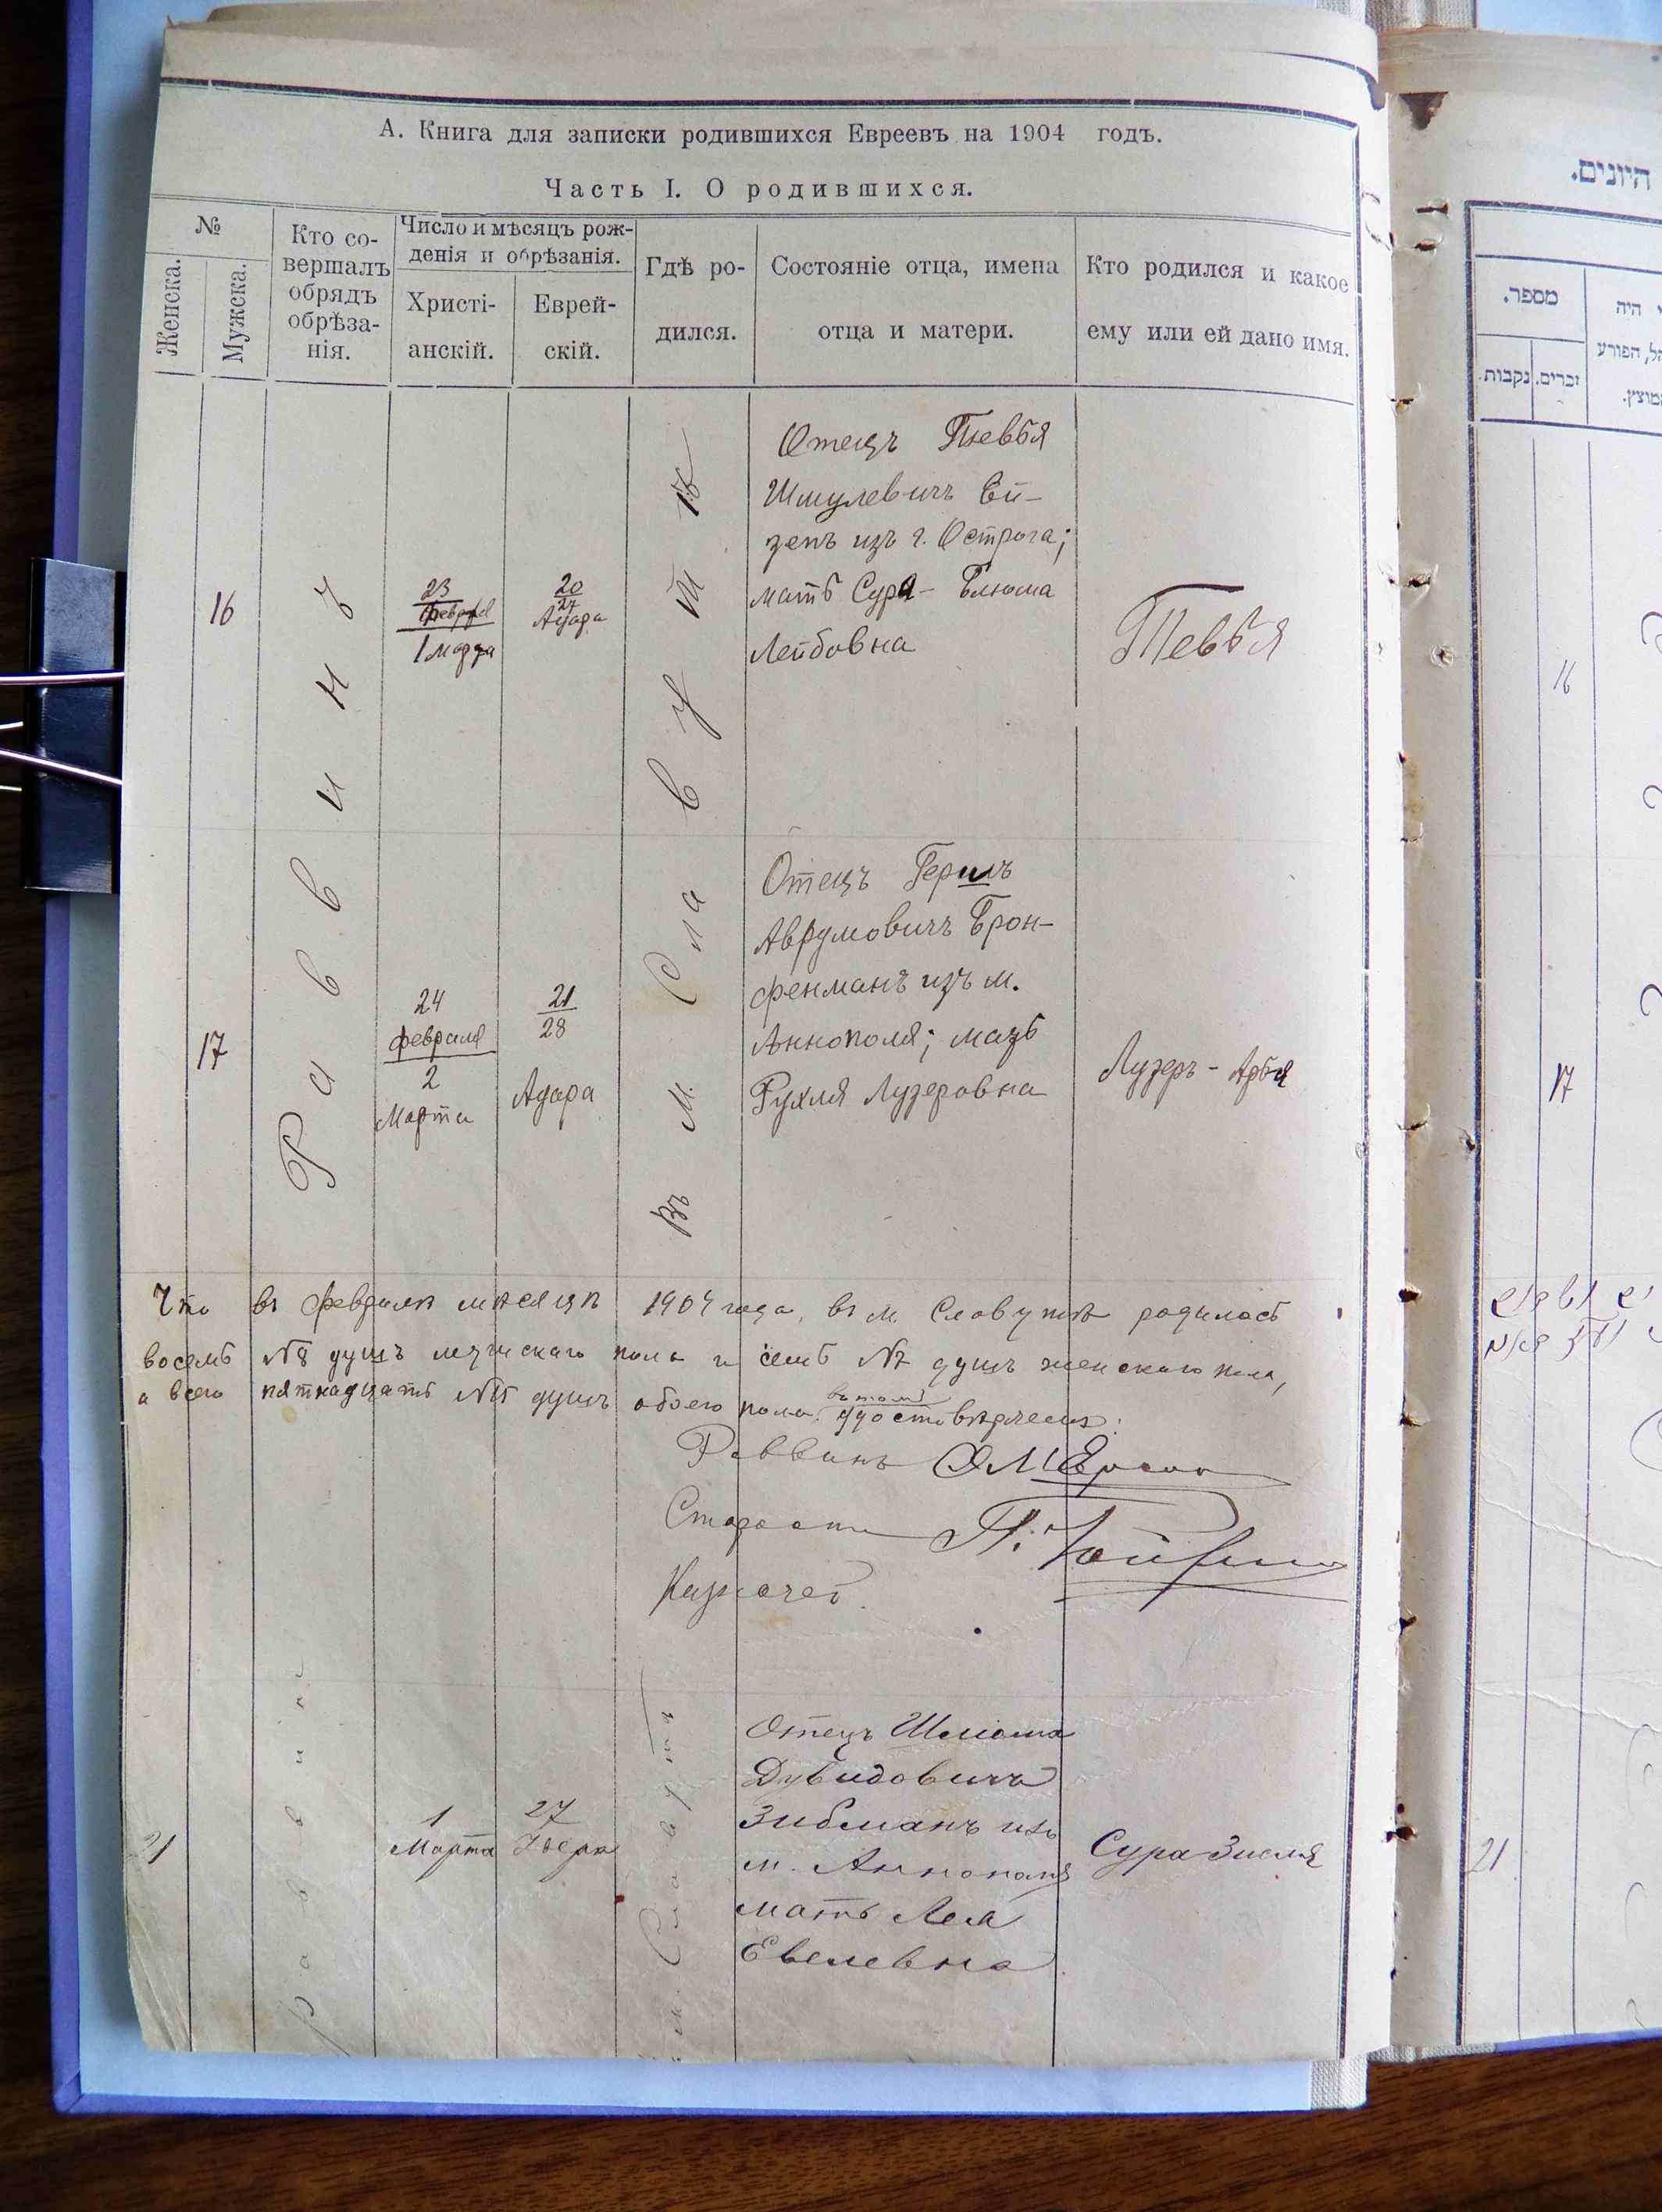 А. Книга для записки родившихся Евреевъ на 1904 годъ.
Часть I. О родившихся.
№
Женска.
Мужска.
Кто со-
вершалъ
обрядъ
обрѣза-
нія.
Число и мѣсяцъ рож-
денія и обрѣзанія.
Христі-
анскій.
Еврей-
скій.
Гдѣ ро-
дился.
Состояніе отца, имена
отца и матери.
Кто родился и какое
ему или ей дано имя.
Раввинъ
Въ м. Славутѣ
16
23
февраля
1 марта
20
27
Адара
Отецъ
Шмулевичъ Ей-
зенъ изъ г. Острога;
мать Сура-Блюма
Лейбовна
Тевья
17
24
февраля
2
Марта
21
28
Адара
Отецъ Гершъ
Аврумовичъ Брон-
фенманъ изъ м.
Аннополя; мать
Рухля Лузеровна
Лузеръ-Арья
Что въ февралѣ мѣсяцѣ 1904 года, въ м. Славутѣ родилось
восемь №8 душъ мужскаго пола и семь №7 душъ женскаго пола,
а всего пятнадцать №15 душъ обоего пола, въ томъ
удостовѣряемъ:
Раввинъ
Староста
Казначей
раввинъ
м. Славута
21
1
Марта
27
Адера
Отецъ Шлiома
Дувидовичъ
Зибманъ изъ
м. Аннополя
мать Лея
Евелевна
Сура Зисля
היונים.
מספר.
זכרים.
נקבות
י היה
הל, הפורע
המוצץ.
16
17
21